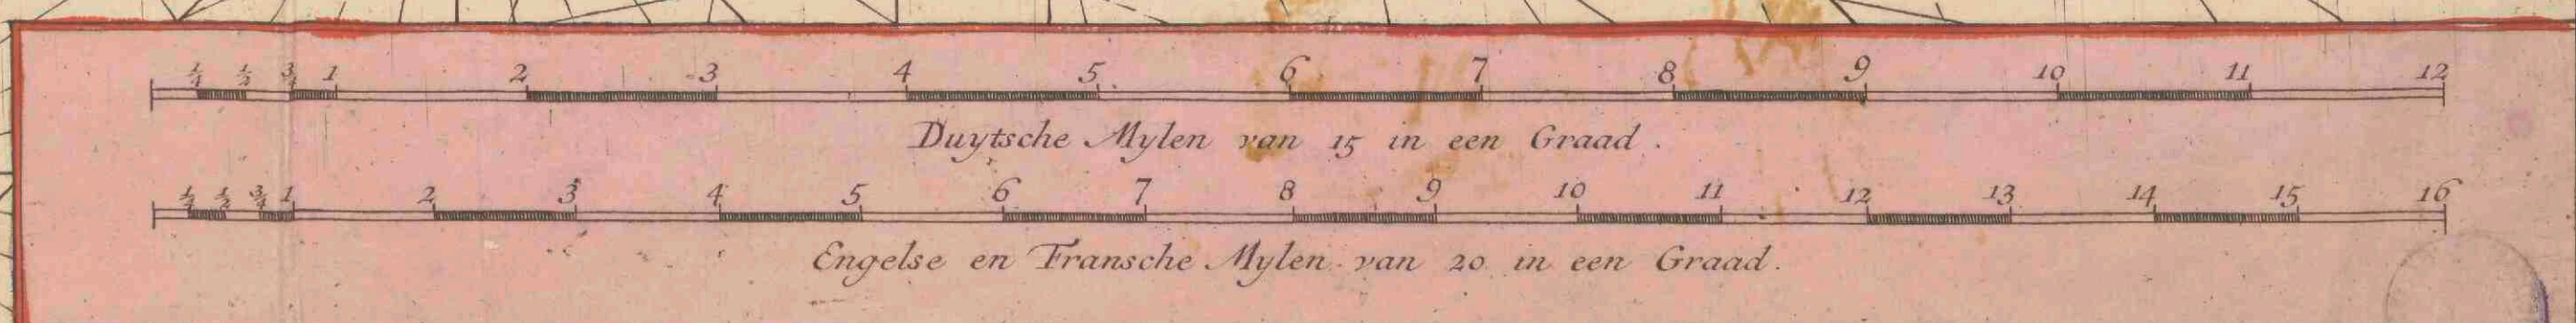 ¼ ½ ¾ 1 2 3 4 5 6 7 8 9 10 11 12
Duytsche Mylen van 15 in een Graad.
¼ ½ ¾ 1 2 3 4 5 6 7 8 9 10 11 12 13 14 15 16
Engelse en Fransche Mylen van 20 in een Graad.